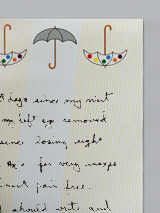 days since my visit
my left eye removed
since losing sight
for very
pain free.
should write and